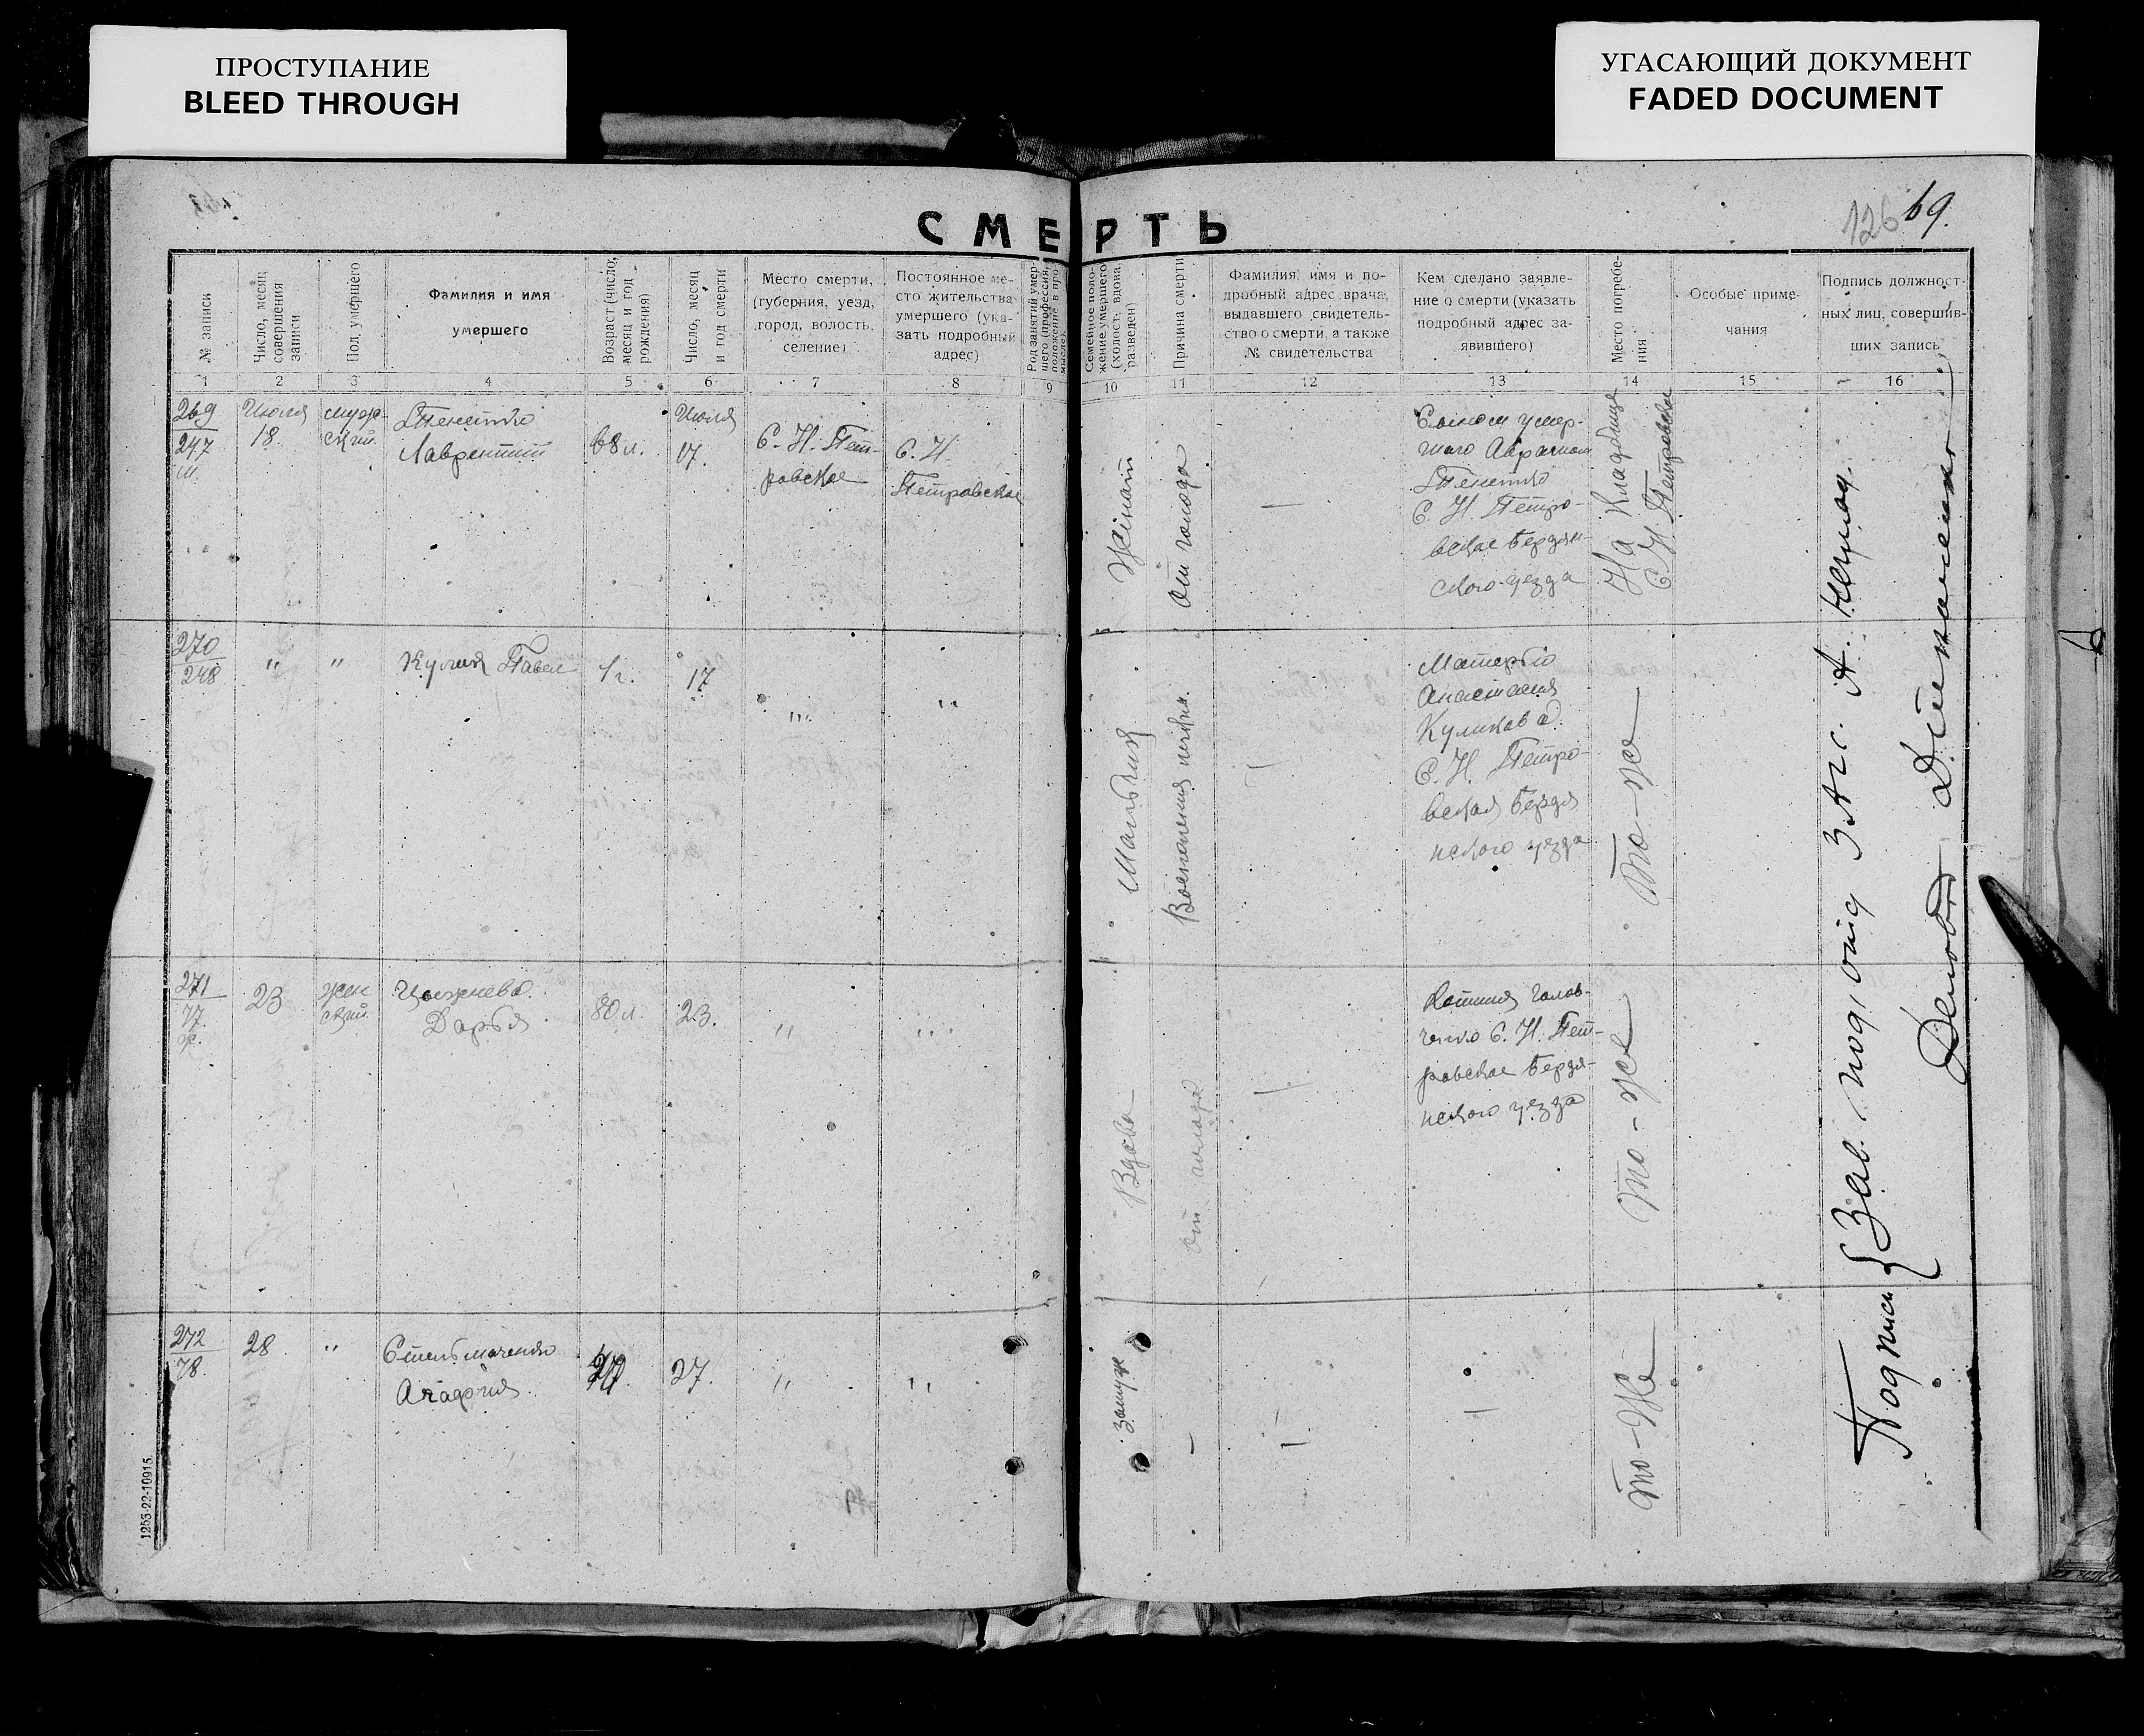 ПРОСТУПАНИЕ
BLEED THROUGH
УГАСАЮЩИЙ ДОКУМЕНТ
FADED DOCUMENT
126 69.
СМЕРТЬ
№ записи
Число, месяц совершения записи
Пол умершего
Фамилия и имя
умершего
Возраст (число, месяц и год рождения)
Число, месяц и год смерти
Место смерти,
(губерния, уезд,
город, волость,
селение)
Постоянное ме-
сто жительства
умершего (ука-
зать подробный
адрес)
Род занятий умер-
шего (профессия,
положение в про-
мысле).
Семейное поло-
жение умершего
(холост, вдова,
разведен)
Причина смерти
Фамилия, имя и по-
дробный адрес врача,
выдавшего свидетель-
ство о смерти, а также
№ свидетельства
Кем сделано заявле-
ние о смерти (указать
подробный адрес за-
явившего)
Место погребе-
ния
Особые приме-
чания
Подпись должност-
ных лиц, совершив-
ших запись
1 2 3 4 5 6 7 8 9 10 11 12 13 14 15 16
269
247
м.
Июля
18.
муж-
ский.
Лаврентий
68 л.
Июля
17.
С. Н. Пет-
ровское
С. Н.
Петровское
Женат
От голода
—
Сыном умер-
шего
С. Н. Петро-
вское Бердян-
ского уезда
На кладбище
С. Н. Петровское
270
248
"
"
Кулик Павел
1 г.
17
"
"
Мальчик
Воспаления
—
Матерью
Анастасия
Куликова.
С. Н. Петро-
вская Бердя
нского уезда
То-же
271
77.
ж.
23
жен
ский.
Дарья
80 л.
23.
"
"
Вдова
От голода
—
С. Н. Пет-
ровское Бердя-
нского уезда
То-же
272
78.
28
"
Стельмаченко
Агафия
27.
"
"
Замуж
-
—
—
То-же
Подписи { Зав. подотд ЗАГС. А.
Делов
1253-22-10915